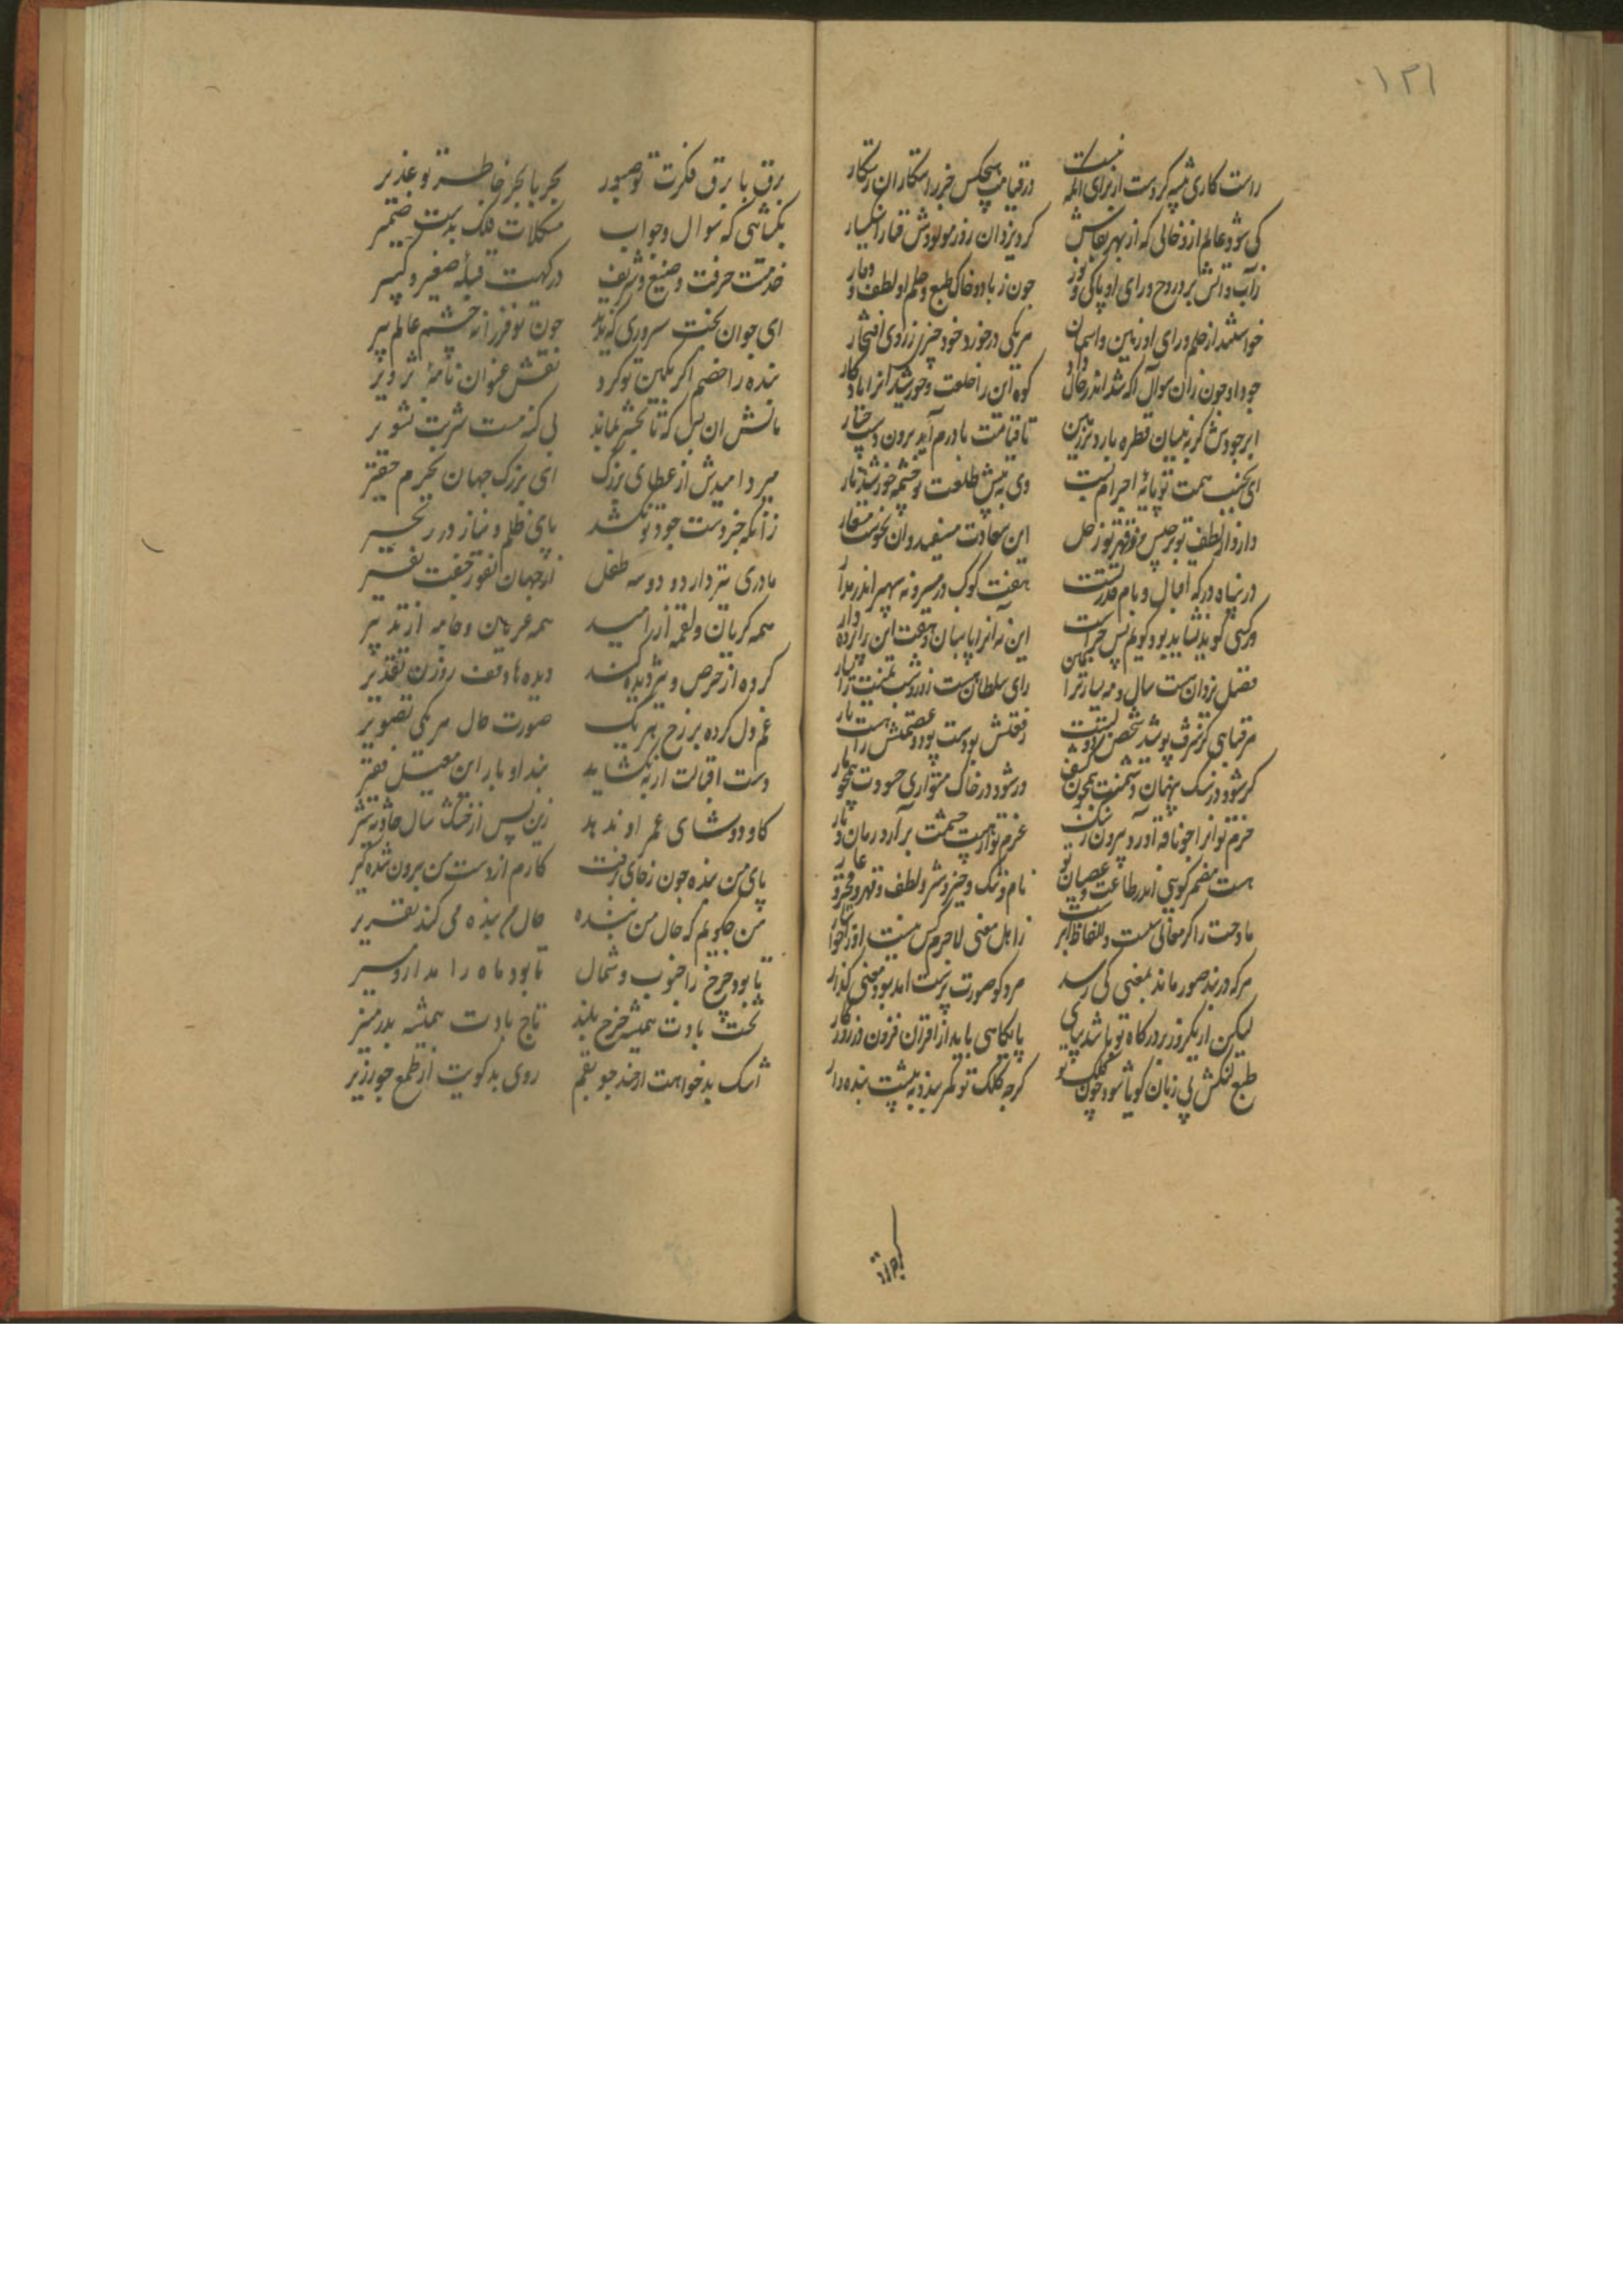 ۱۳۱
راست کاری پیشه کردست از برای آنکه نیست در قیامت هیچکس جز راستکاران رستکار
کی شود عالم ازو خالی که از بهر بقاش کرد یزدان روز مولودش قنا را
زآب و آتش برد روح و رای او پاکی و نور چون ز باد و خاک طبع و حلم او لطف و وقار
خواستند از حلم و رای او زمین و آسمان هر یکی در خورد خود چیزی ز روی افتخار
جود او چون زان سوال آگه شد اندر حال داد کوه این را خلعت و خورشید آنرا یادکار
ابر جودش کر به نیسان قطره بارد بر زمین تا قیامت با درم آید برون دست چنار
ای بجنب همت تو پایهٔ اجرام پست وی به پیش طلعت تو چشمه خورشید تار
دارد از لطف تو برجیس و ز قهر تو زحل این سعادت مستفید و ان نحوست مستعار
در پناه درکه اقبال و بام قدرتت هفت کوکب در مسیر و نه سپهر اندر مدار
ور کسی کوید نشاید بود کویم پس چراست این نه آنرا پاسبان و هفت این را پرده دار
فضل یزدان هست سال و مه یمین رای سلطان هست روز و شب
هر قبایی کز شرف پوشید شخص رفعتش بودست پود و عصمتش را هست تار
کر شود در سنک پنهان دشمنت همچون کشف ور شود در خاک متواری حسودت همچو مار
حزم تو آنرا چو ناقه آورد بیرون ز سنک عزم تو از هست برآرد زمان
هست مضمر کویی اندر طاعت و عصیان تو نام و ننک و خیر و شر و لطف و قهر و فخر و عار
مادحت را کر معانی سست و الفاظ ابترست ز اهل معنی لاجرم کس نیست او را خواستار
هرکه در بند صور ماند بمعنی کی رسد مرد کو صورت پرست آمد بود معنی کذار
لیکن ار یکروز بر درکاه تو باشد بپای پایکاهی یابد از اقران فزون در روزکار
طبع کنکش بی زبان کویا شود چون کلک تو کرچه کلک تو کمر بندد به پیشت بنده وار
برق با برق فکرت تو صبور بحر با بحر خاطر تو غدیر
بکشایی که سوال و جواب مشکلات فلک بدست ضمیر
خدمتت حرفت وضیع و شریف درکهت قبلهٔ صغیر و کبیر
ای جوان بخت سروری که ندید چون تو فرزانه چشم عالم پیر
بنده را خصم اکر بکین تو کرد نقش عنوان نامهٔ تزویر
مالش ان بس که تا بحشر بماند بی کنه مست شربت تشویر
میر دا میدش از عطای بزرک ای بزرک جهان بجرم حقیر
زانکه جز دست جود تو نکشد پای ظلم و نیاز در زنجیر
مادری نیز دارد و دو سه طفل از جهان نفور جفت نفیر
همه کریان و لقمه از امید همه عریان و جامه از تدبیر
کرده از حرص و تیز دیده کند دیده ها وقف روزن تقدیر
غم دل کرده بر رخ هر یک صورت حال هر یکی تصویر
دست اقبالت ار بنکشاید بند ادبار این معیل فقیر
کاو دوشای عمر او ندهد زین پس از خشک سال حادثه شیر
پای من بنده چون ز جای برفت کارم از دست من برون شده کیر
من چکویم که حال من بنده حال من بنده می کند تقریر
تا بود چرخ را جنوب و شمال تا بود ماه را مدار و مسیر
تخت بادت همیشه چرخ بلند تاج بادت همیشه بدر منیر
اشک بدخواهت از حسد چو بقم روی بدکویت از طمع چو زریر